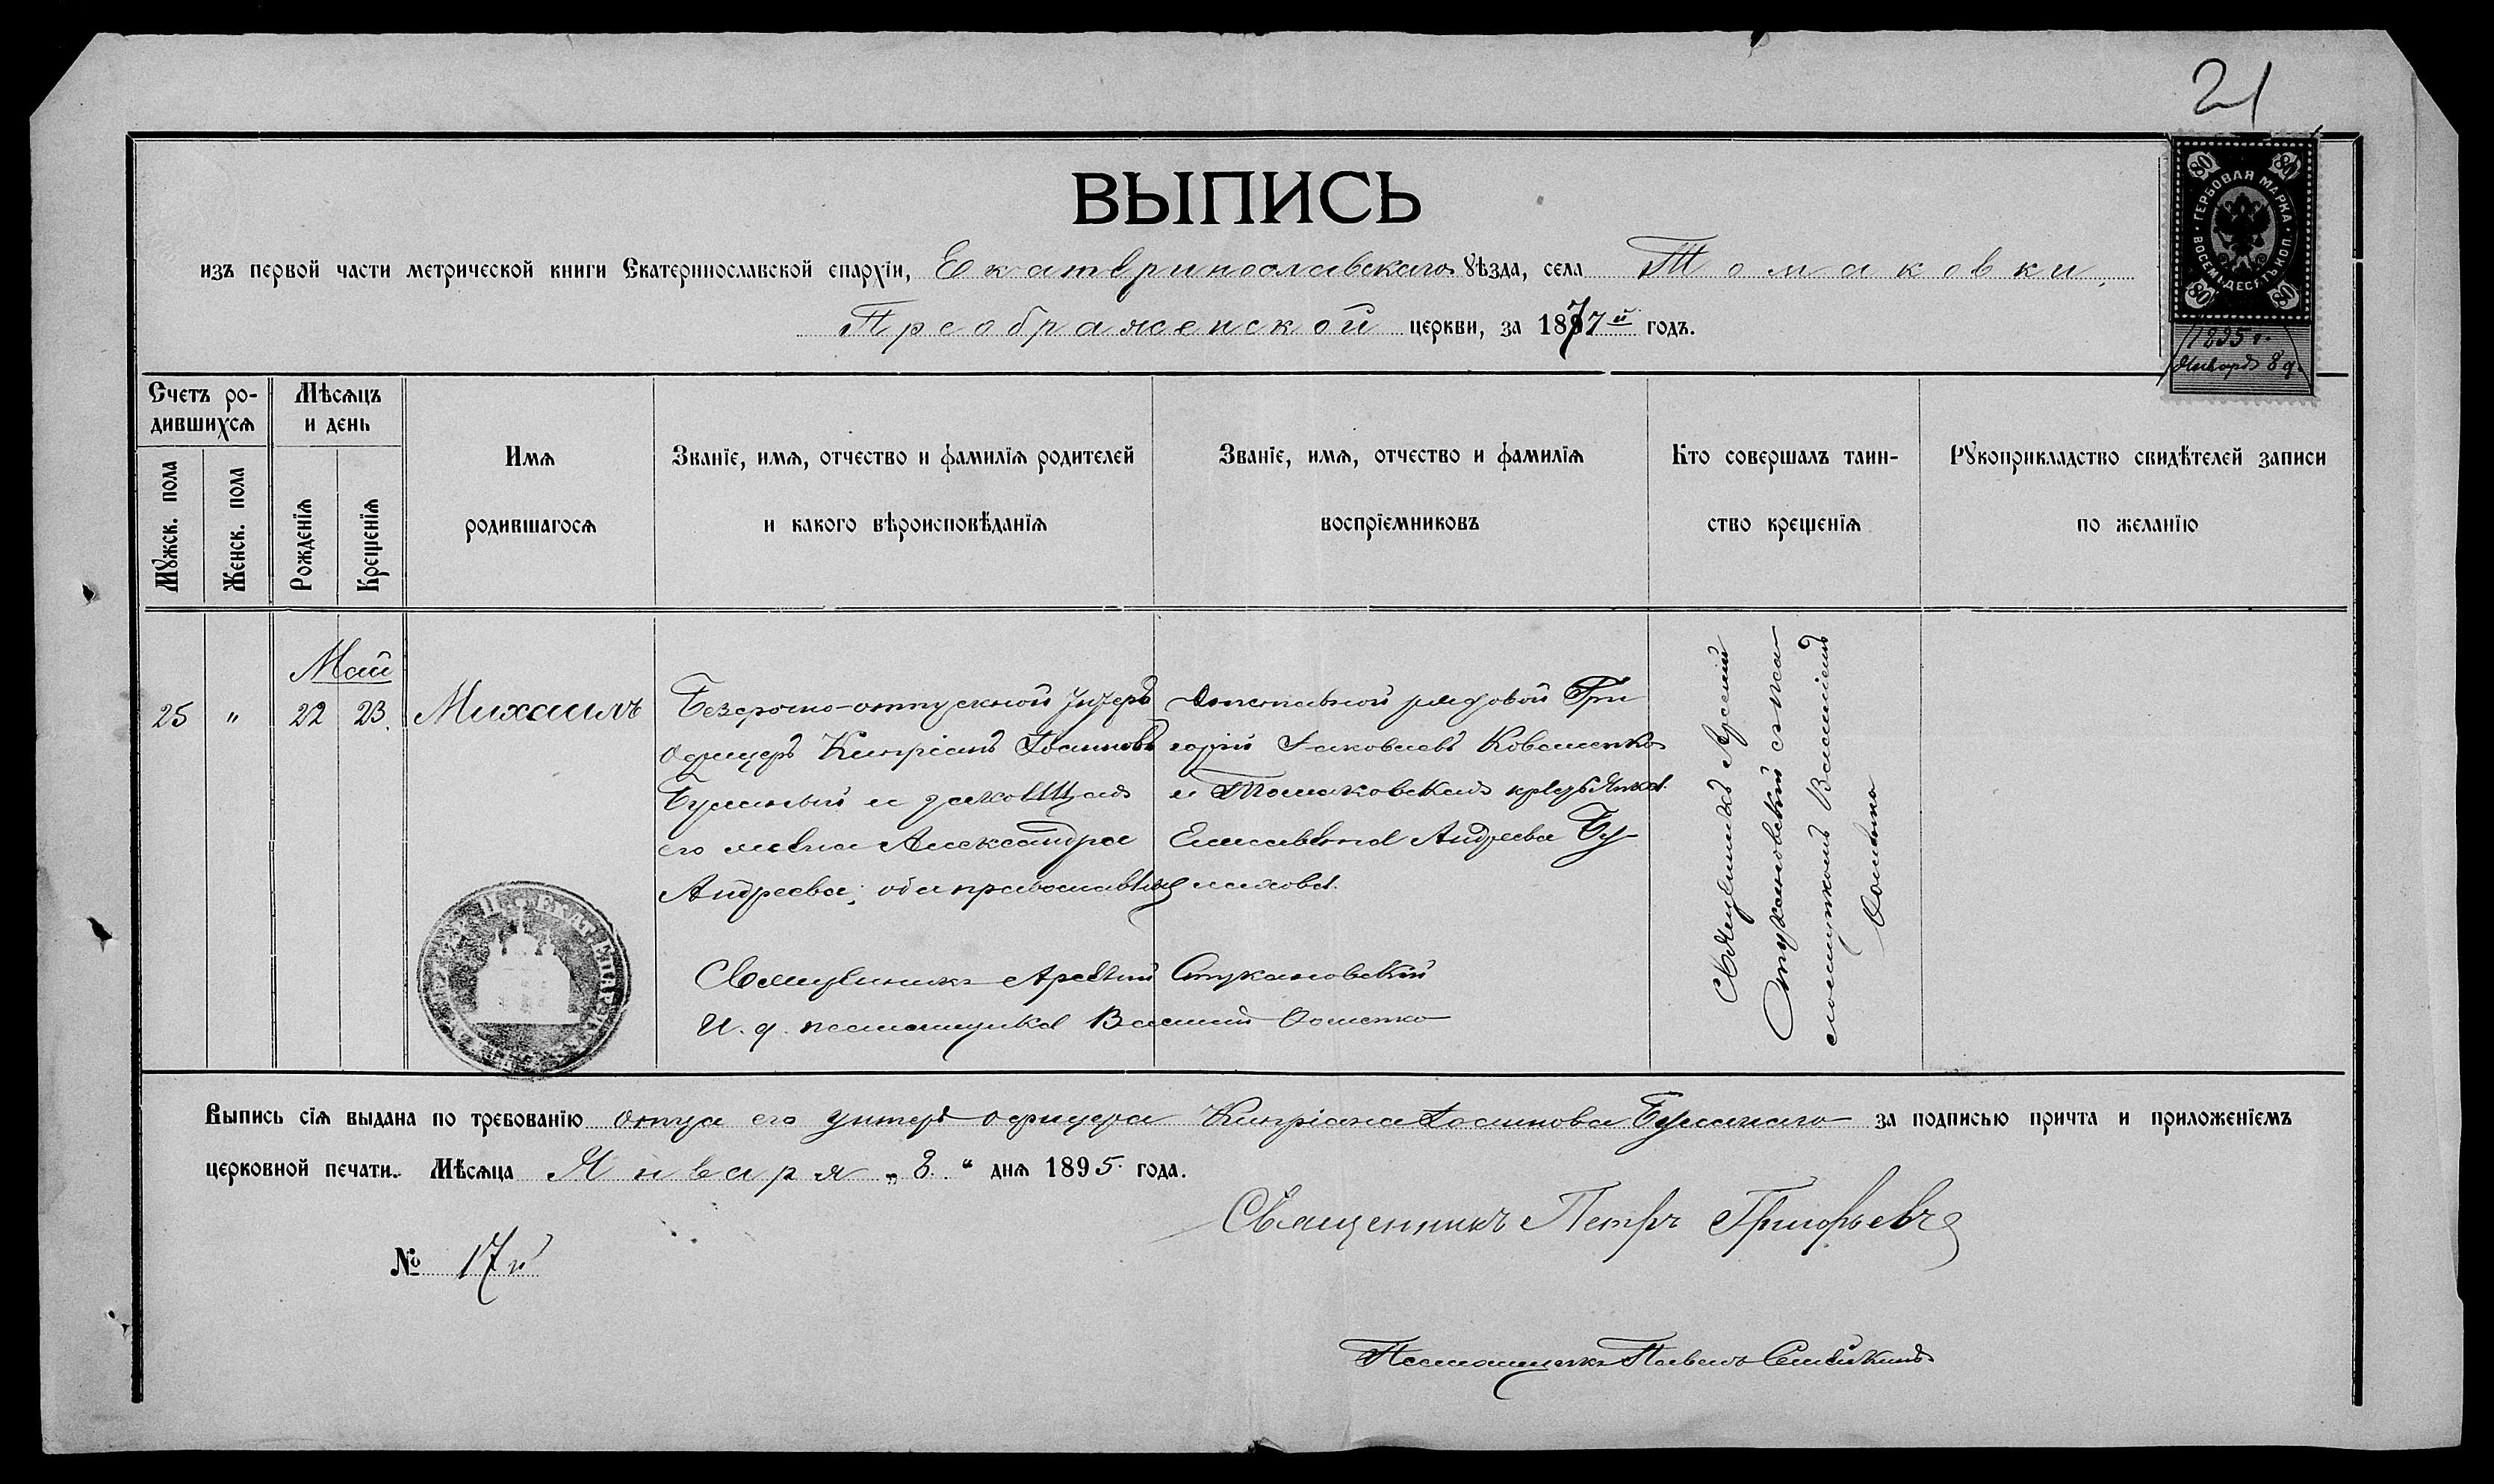 21
ГЕРБОВАЯ МАРКА ВОСЕМЬДЕСЯТЪ КОП.
80 80
80 80
1895 г.
Января 8 д.
ВЫПИСЬ
изъ первой части метрической книги Екатеринославской епархіи, Екатеринославскаго уѣзда, села Томаковки,
Преображенской церкви, за 1877й годъ.
Счетъ родившихся
Мужск. пола
Женск. пола
Мѣсяцъ и день
Рожденія
Крещенія
Имя
родившагося
Званіе, имя, отчество и фамилія родителей
и какого вѣроисповѣданія
Званіе, имя, отчество и фамилія
воспріемниковъ
Кто совершалъ таин-
ство крещенія
Рукоприкладство свидѣтелей записи
по желанію
Май
25 " 22 23 Михаилъ
Безсрочно-отпускной Унтеръ
офицеръ Кипріанъ Іоанновъ
Буланый и законная
его жена Александра
Андреева; оба православные
Отставной рядовой Гри
горій Іаковлевъ Коваленко
и Томаковская крестьянка
Елисавета Андреева Бу-
лахова.
Священникъ Арсеній
Стукановскій съ пса-
ломщикомъ Василіемъ
Священникъ Арсеній Стукановскій
И. д. псаломщика Василій
Выпись сія выдана по требованію отца его унтеръ-офицера Кипріана Іоаннова Буланаго за подписью причта и приложеніемъ
церковной печати. Мѣсяца Января „8." дня 1895 года.
Священникъ Петръ Григорьевъ
№ 17й
Псаломщикъ Павелъ